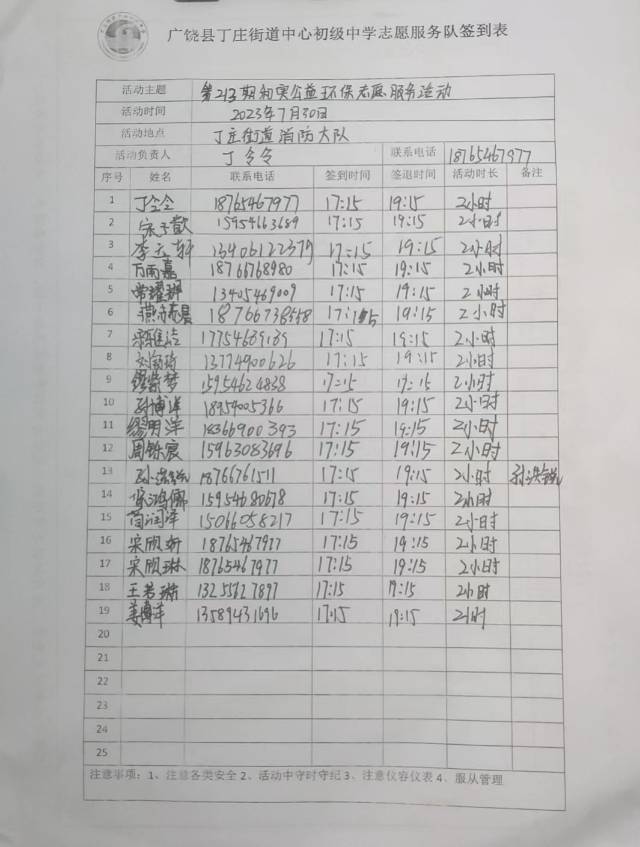 广饶县丁庄街道中心初级中学志愿服务队签到表
活动主题 第213期和寞公益环保志愿服务活动
活动时间 2023年7月30日
活动地点 丁庄街道消防大队
活动负责人 丁令令 联系电话 18765467977
序号 姓名 联系电话 签到时间 签退时间 活动时长 备注
1 丁令令 18765467977 17:15 19:15 2小时
2 宋子歆 15954663689 17:15 19:15 2小时
3 李云轩 13406122379 17:15 19:15 2小时
4 万雨嘉 18766768980 17:15 19:15 2小时
5 常耀翔 13405469009 17:15 19:15 2小时
6 17:15 19:15 2小时
7 17754689189 17:15 19:15 2小时
8 13774900626 17:15 19:15 2小时
9 15954624838 17:15 17:15 2小时
10 孙博洋 18954005366 17:15 19:15 2小时
11 缪明洋 18366900393 17:15 19:15 2小时
12 周铄宸 15963083696 17:15 19:15 2小时
13 18766761511 17:15 19:15 2小时
14 15954680678 17:15 19:15 2小时
15 苟润泽 15066058217 17:15 19:15 2小时
16 宋欣妍 18765467977 17:15 19:15 2小时
17 宋欣琳 18765467977 17:15 19:15 2小时
18 王若琳 17:15 19:15 2小时
19 13589431696 17:15 19:15 2小时
20
21
22
23
24
25
注意事项：1、注意各类安全 2、活动中守时守纪 3、注意仪容仪表 4、服从管理